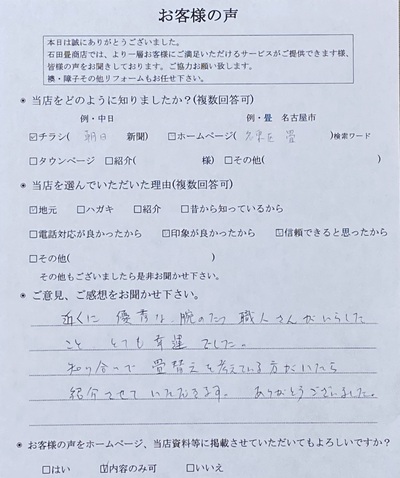 お客様の声
本日は誠にありがとうございました。
石田畳商店では、より一層お客様にご満足いただけるサービスがご提供できます様、
皆様の声をお聞きしております。ご協力お願い致します。
襖・障子その他リフォームもお任せ下さい。
◉ 当店をどのように知りましたか？(複数回答可)
例・中日 例・畳 名古屋市
☑チラシ( 朝日 新聞) □ホームページ( 名東区 畳 )検索ワード
□タウンページ □紹介( 様) □その他( )
◉ 当店を選んでいただいた理由(複数回答可)
☑地元 □ハガキ □紹介 □昔から知っているから
□電話対応が良かったから ☑印象が良かったから ☑信頼できると思ったから
□その他( )
その他もございましたら是非お聞かせ下さい。
◉ ご意見、ご感想をお聞かせ下さい。
近くに 優秀な 腕のたつ 職人さんがいらした
こと とても 幸運 でした。
知り合いで 畳替えを考えている方がいたら
紹介させて いただきます。 ありがとうございました。
◉ お客様の声をホームページ、当店資料等に掲載させていただいてもよろしいですか？
□はい ☑内容のみ可 □いいえ